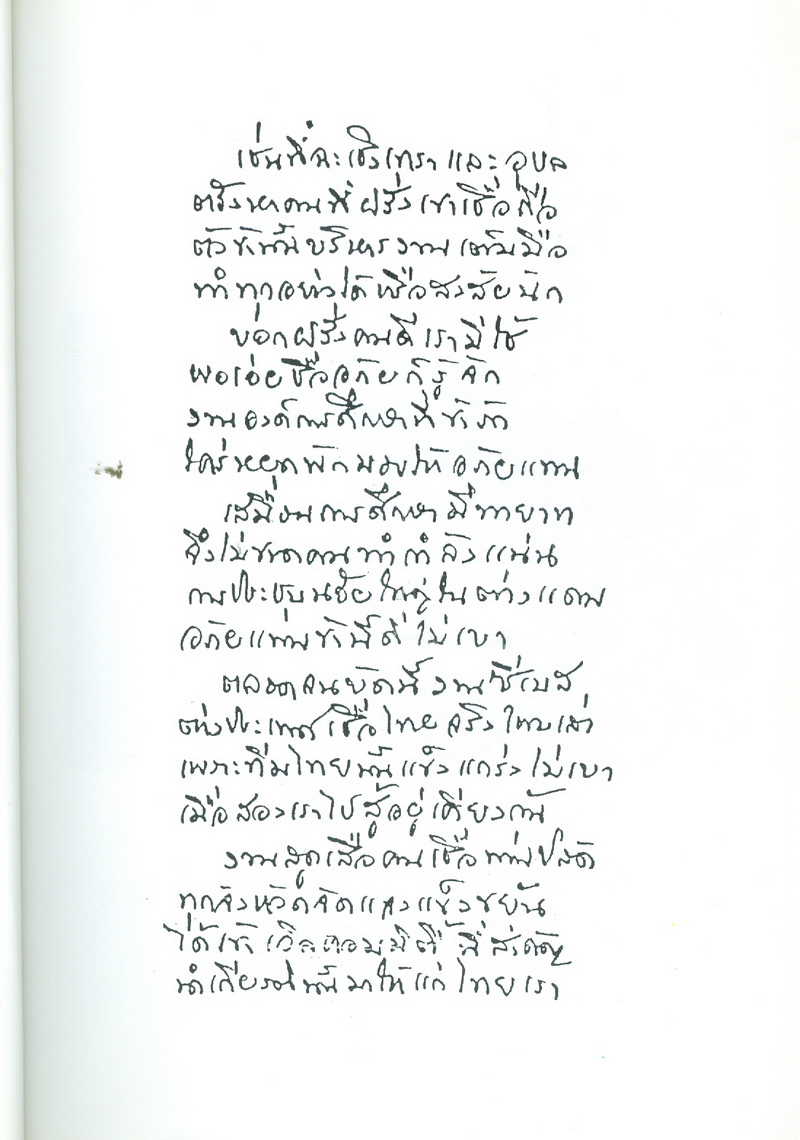 เช่นที่ฉะเชิงเทราและอุบล
ตรังหาคนที่ฝรั่งเขาเชื่อถือ
ตัวข้านั้นบริหารงานเต็มมือ
ทำทุกอย่างได้หรือสงสัยนัก
บอกฝรั่งคนดีเรามีใช้
พอเอ่ยชื่ออภัยก็รู้จัก
งานองค์การศึกษาที่ข้ารัก
ใคร่หยุดพักมอบให้อภัยแทน
เสมือนการศึกษามีทายาท
จึงไม่ขาดคนทำกำลังแน่น
การประชุมน้อยใหญ่ในต่างแดน
อภัยแทนข้านี้ดีไม่เบา
ตลอดจนยุคนี้งานซีเมส
ต่างประเทศเชื่อไทยจริงไหมเล่า
เพราะทีมไทยนั้นแข็งแกร่งไม่เบา
เมื่อสองเราไปสู้อยู่เคียงกัน
งานลูกเสือคนเชื่อท่านปลัด
ทุกจังหวัดจัดแถลงแข็งขยัน
ได้เข้าเวิลคอมมิตี้ที่สำคัญ
นำเกียรตินั้นมาให้แก่ไทยเรา